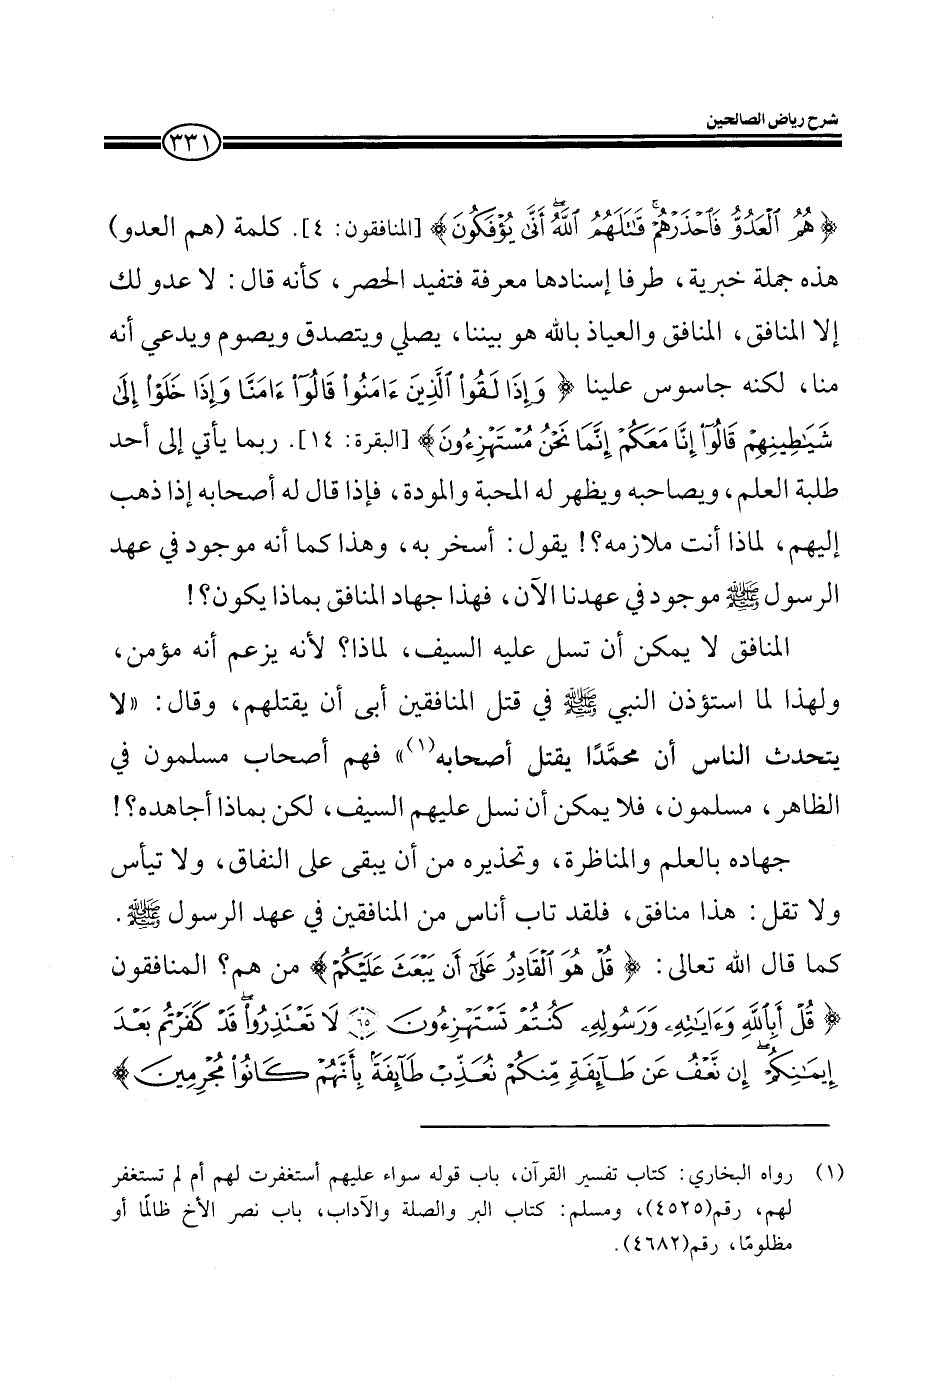 شرح رياض الصالحين
٣٣١
﴿هُمُ ٱلْعَدُوُّ فَٱحْذَرْهُمْ ۚ قَٰتَلَهُمُ ٱللَّهُ ۖ أَنَّىٰ يُؤْفَكُونَ﴾ [المنافقون: ٤]. كلمة (هم العدو)
هذه جملة خبرية، طرفا إسنادها معرفة فتفيد الحصر، كأنه قال: لا عدو لك
إلا المنافق، المنافق والعياذ بالله هو بيننا، يصلي ويتصدق ويصوم ويدعي أنه
منا، لكنه جاسوس علينا ﴿وَإِذَا لَقُوا۟ ٱلَّذِينَ ءَامَنُوا۟ قَالُوٓا۟ ءَامَنَّا وَإِذَا خَلَوْا۟ إِلَىٰ
شَيَٰطِينِهِمْ قَالُوٓا۟ إِنَّا مَعَكُمْ إِنَّمَا نَحْنُ مُسْتَهْزِءُونَ﴾ [البقرة: ١٤]. ربما يأتي إلى أحد
طلبة العلم، ويصاحبه ويظهر له المحبة والمودة، فإذا قال له أصحابه إذا ذهب
إليهم، لماذا أنت ملازمه؟! يقول: أسخر به، وهذا كما أنه موجود في عهد
الرسول ﷺ موجود في عهدنا الآن، فهذا جهاد المنافق بماذا يكون؟!
المنافق لا يمكن أن تسل عليه السيف، لماذا؟ لأنه يزعم أنه مؤمن،
ولهذا لما استؤذن النبي ﷺ في قتل المنافقين أبى أن يقتلهم، وقال: «لا
يتحدث الناس أن محمَّدًا يقتل أصحابه(١)» فهم أصحاب مسلمون في
الظاهر، مسلمون، فلا يمكن أن نسل عليهم السيف، لكن بماذا أجاهده؟!
جهاده بالعلم والمناظرة، وتحذيره من أن يبقى على النفاق، ولا تيأس
ولا تقل: هذا منافق، فلقد تاب أناس من المنافقين في عهد الرسول ﷺ.
كما قال الله تعالى: ﴿قُلْ هُوَ ٱلْقَادِرُ عَلَىٰٓ أَن يَبْعَثَ عَلَيْكُمْ﴾ من هم؟ المنافقون
﴿قُلْ أَبِٱللَّهِ وَءَايَٰتِهِۦ وَرَسُولِهِۦ كُنتُمْ تَسْتَهْزِءُونَ ٦٥ لَا تَعْتَذِرُوا۟ ۖ قَدْ كَفَرْتُم بَعْدَ
إِيمَٰنِكُمْ ۚ إِن نَّعْفُ عَن طَآئِفَةٍ مِّنكُمْ نُعَذِّبْ طَآئِفَةًۢ بِأَنَّهُمْ كَانُوا۟ مُجْرِمِينَ﴾
(١) رواه البخاري: كتاب تفسير القرآن، باب قوله سواء عليهم أستغفرت لهم أم لم تستغفر
لهم، رقم(٤٥٢٥)، ومسلم: كتاب البر والصلة والآداب، باب نصر الأخ ظالمًا أو
مظلومًا، رقم(٤٦٨٢).